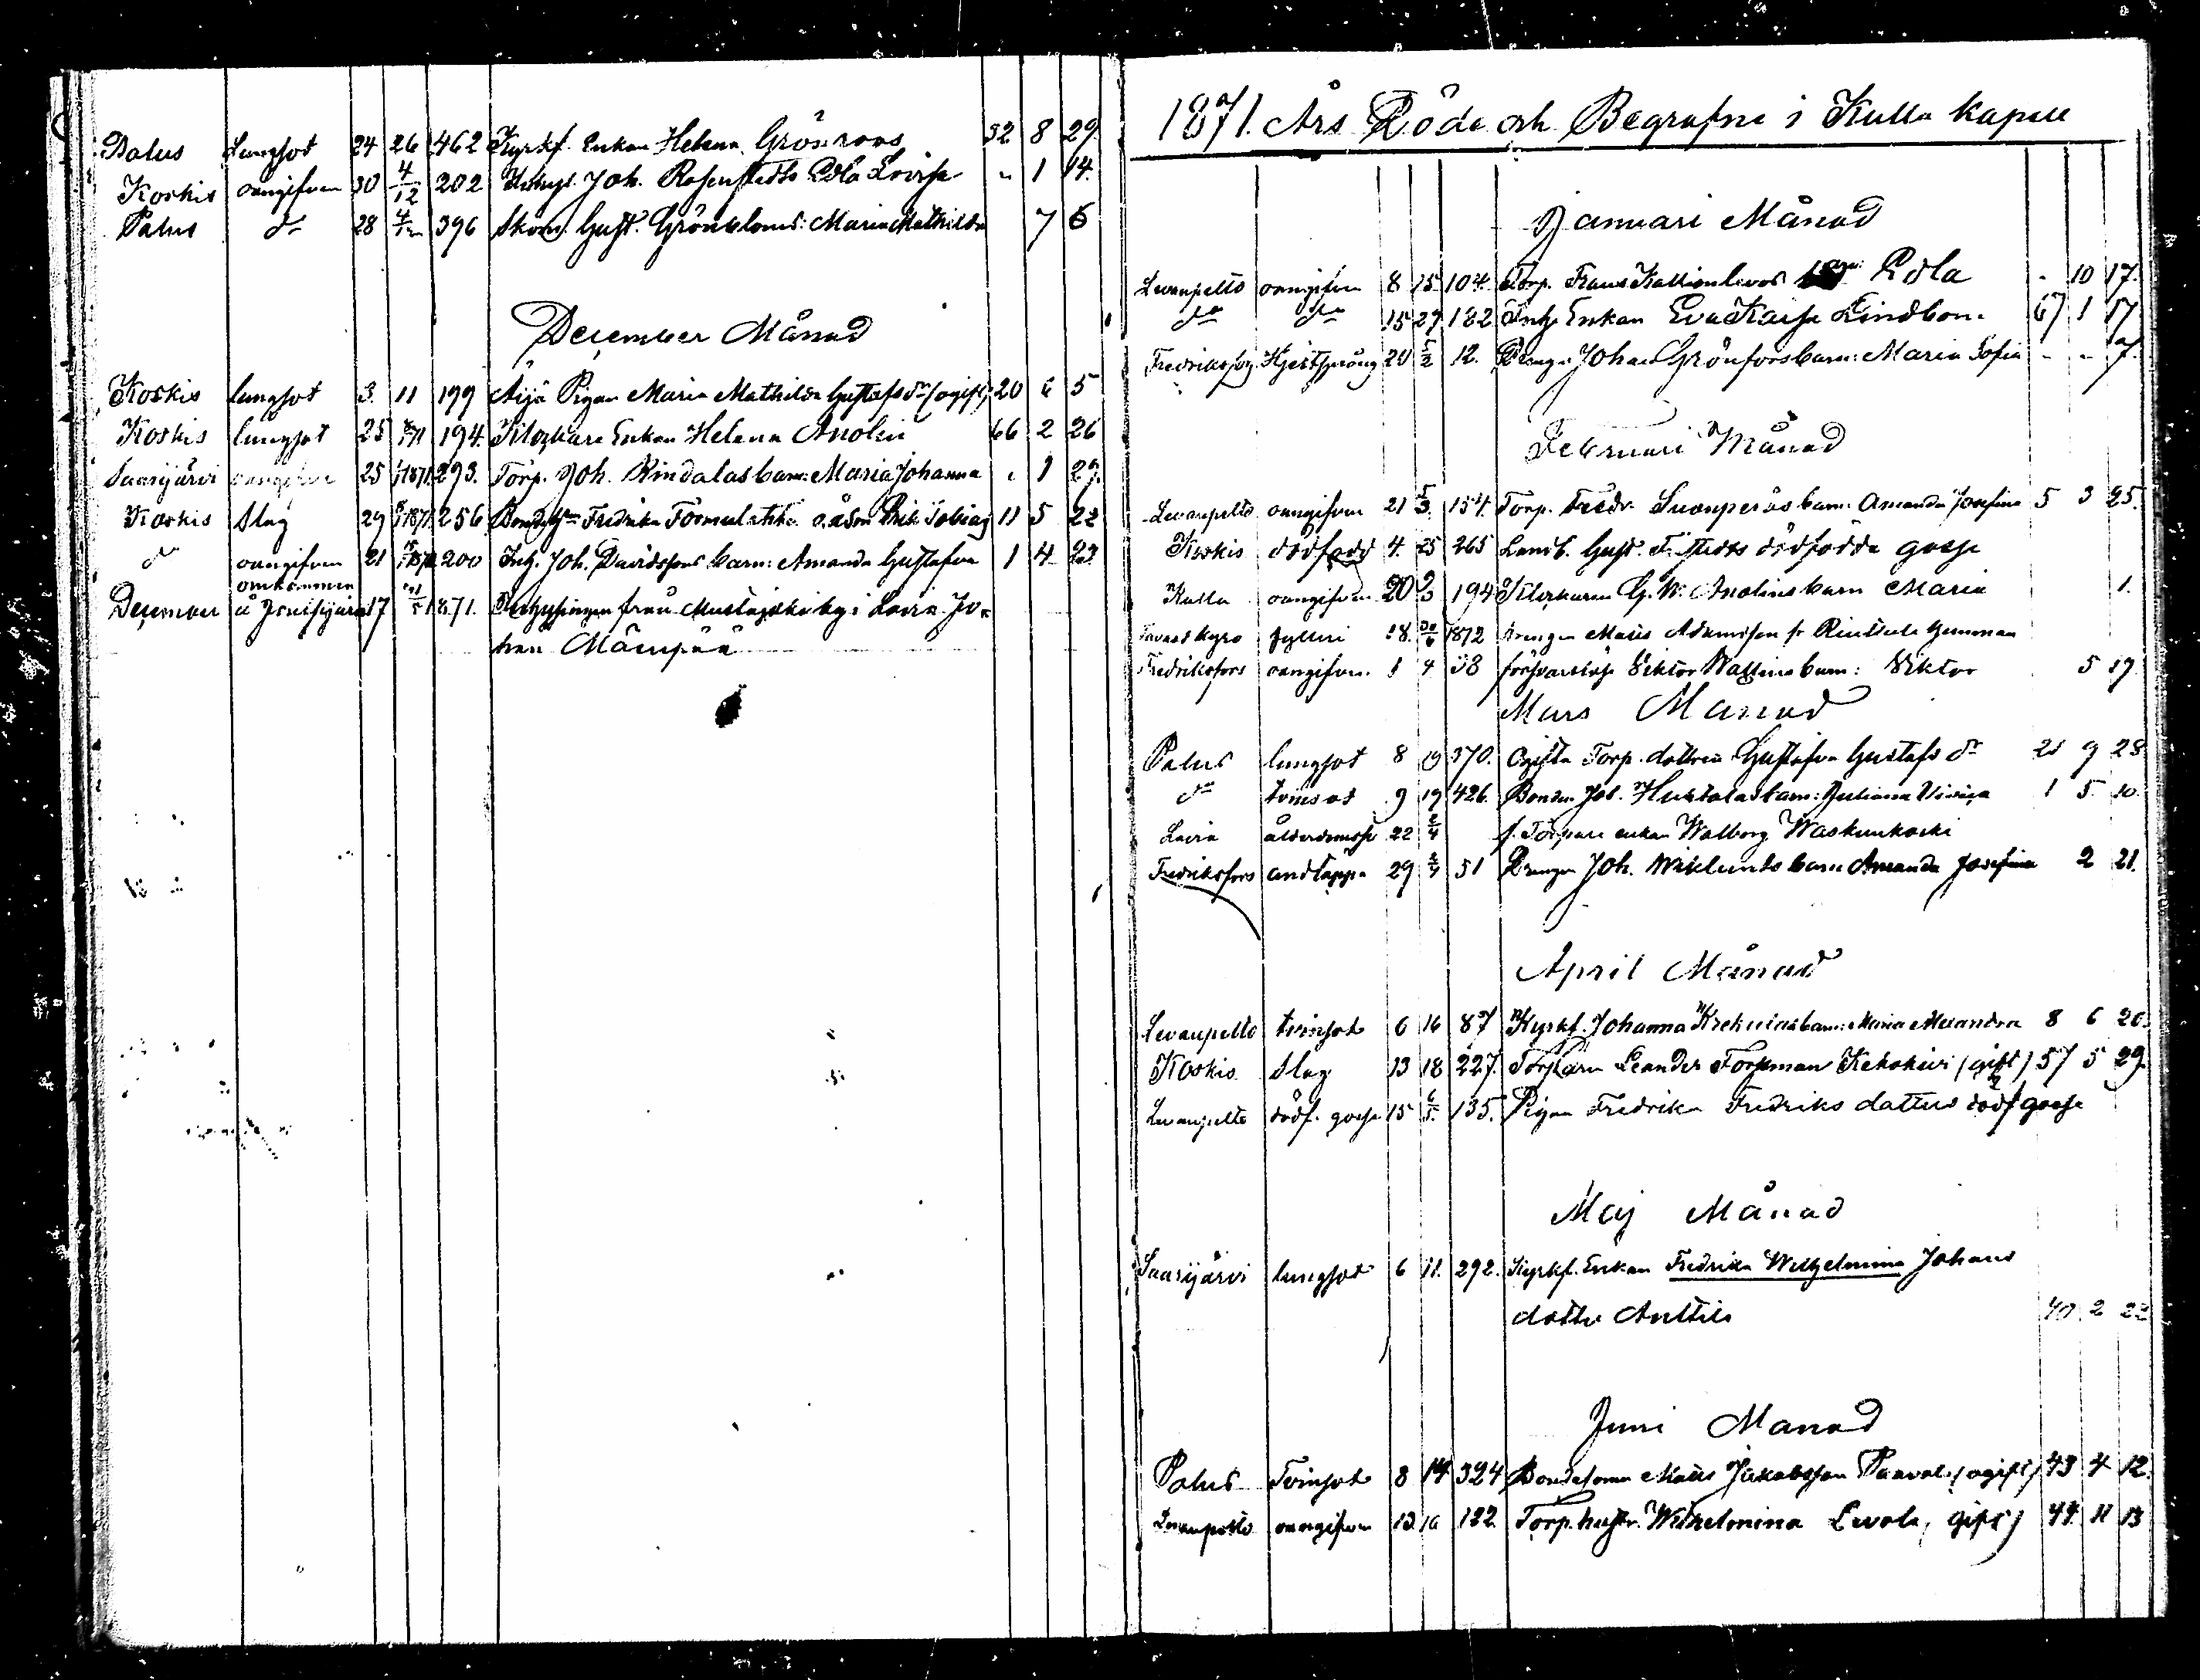 Palus lungsot 24 26 462 Kyrkf. Enkan Helena Grönroos 52 8 29.
Koskis oangifven 30 4/12 202 Inhys. Joh. Rosenstedts Edla Lovisa " 1 14.
Palus do 28 4/12 396 Skom. Gust. Grönbloms: Maria Mathilda 7 6
December Månad
Koskis lungsot 3 11 199 Äijä Pigan Maria Mathilda Gustafs dr (ogift) 20 6 5
Koskis lungsot 25 194. Enkan Helena Anolin 66 2 26
Saarijärvi oangifven 25 293. Torp. Joh. Rindalas barn: Maria Johanna " 1 29.
Koskis Slag 29 256 Fredrika o.ä. Son Erik Tobias 11 5 22
do oangifven 21 200 Inh. Joh. Davidssons barn: Amanda Gustafva 1 4 23
omkommen
December å 17 1871. Inhysingen från by i Lavia Jo-
han
1871. Års Döde och Begrafne i Kulla kapell
Januari Månad
Levanpelto oangifven 8 15. 104. Torp. Frans Edla - 10 17.
do do 15 29 182 Inh. Enkan Eva Kaisa Lindbom 67 1 17
Fredriksfors 20 5/2 12. Dreng. Johan Grönfors barn: Maria Sofia - - 7.
Februari Månad
Levanpelto oangifven 21 5/3. 154. Torp. Fredr. Suonperäs barn: Amanda Josefina 5 3 25.
Koskis dödfödd 4. 25 265 Landb. Gust. dödfödda gosse
Kulla oangifven 20 194 G. W. Anolins barn Maria 1.
Tavastkyro fylleri 18. 1872 drengen Matts Adamsson fr.
Fredriksfors oangifven. 1 4 Viktor Wallins barn: Viktor 5 17.
Mars Månad
Palus lungsot 8 19 370. Ogifta Torp. dottren Gustafva Gustafs dr 21 9 28
do tvinsot 9 19 426. Bonden Joh. Huhtalas barn: Juliana 1 5 10.
Lavia 22 2/4 f. Torpare enkan Walborg Waskunkoski
Fredriksfors andtäppa 29 2/4 51 Drengen Joh. Wiklunds barn Amanda Josefina 2 21.
April Månad
Levanpelto tvinsot 6 16 87 Kyrkf. Johanna barn: Maria Alexandra 8 6 20.
Koskis Slag 13 18 227. Torparen Leander Forsman (gift) 57 5 29.
Levanpelto dödf. gosse 15 6/5. 135. Pigan Fredrika Fredriks dotters dödf gosse
Maj Månad
Saarijärvi lungsot 6 11. 292. Kyrkf. Enkan Fredrika Wilhelmina Johans
dotter Anttila 40. 2 22
Juni Månad
Palus Tvinsot 8 14 324 Bondesonen Matts Jakobsson (ogift) 43 4 12.
Levanpelto oangifven 13 16 122. Torp. hustr. Wilhelmina Levola, gift) 44. 11 13